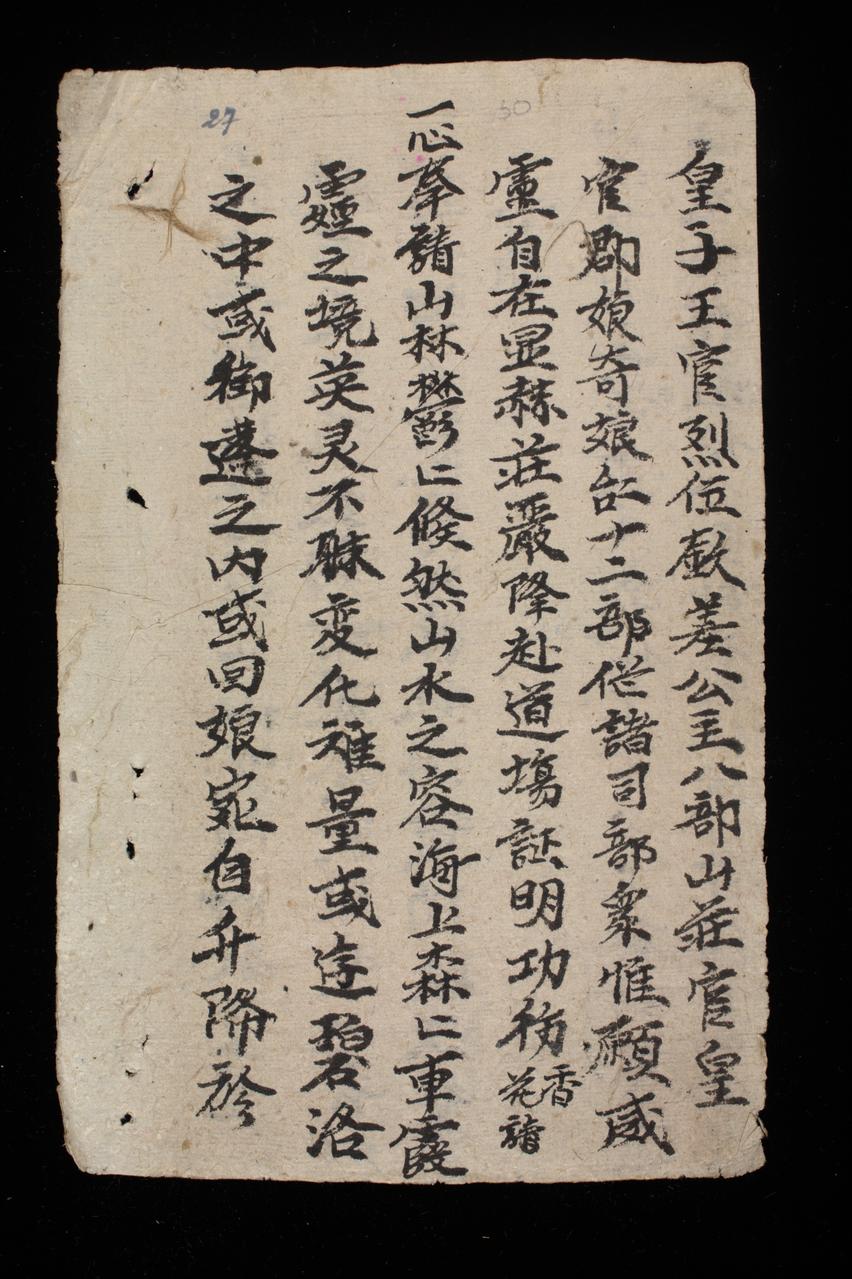 皇子王官烈位獻差公主八部山莊官皇
官郡娘奇娘台十二部仙諸司部衆惟願威
靈自在显赫莊嚴降赴道塲証明功德香花請
一心奉請山林欝〻倏然山水之容海上森〻車霞
之境英灵不昧变化难量或遊碧洛
之中或御蓬之内或回娘宛自升降於
27
50